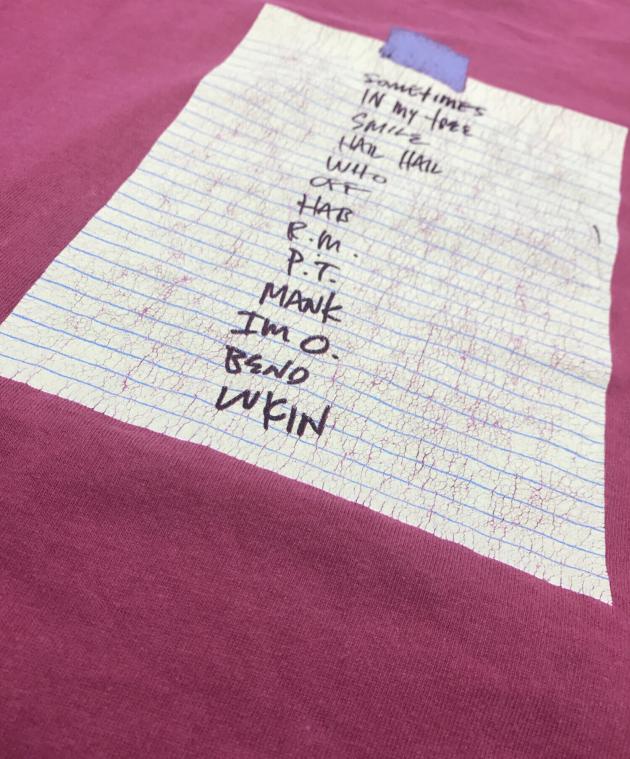 SOMETIMES
IN MY tree
SMILE
HAIL HAIL
WHO
OFF
HAB
R.M.
P.T.
MANK
Im O.
BEND
LUKIN